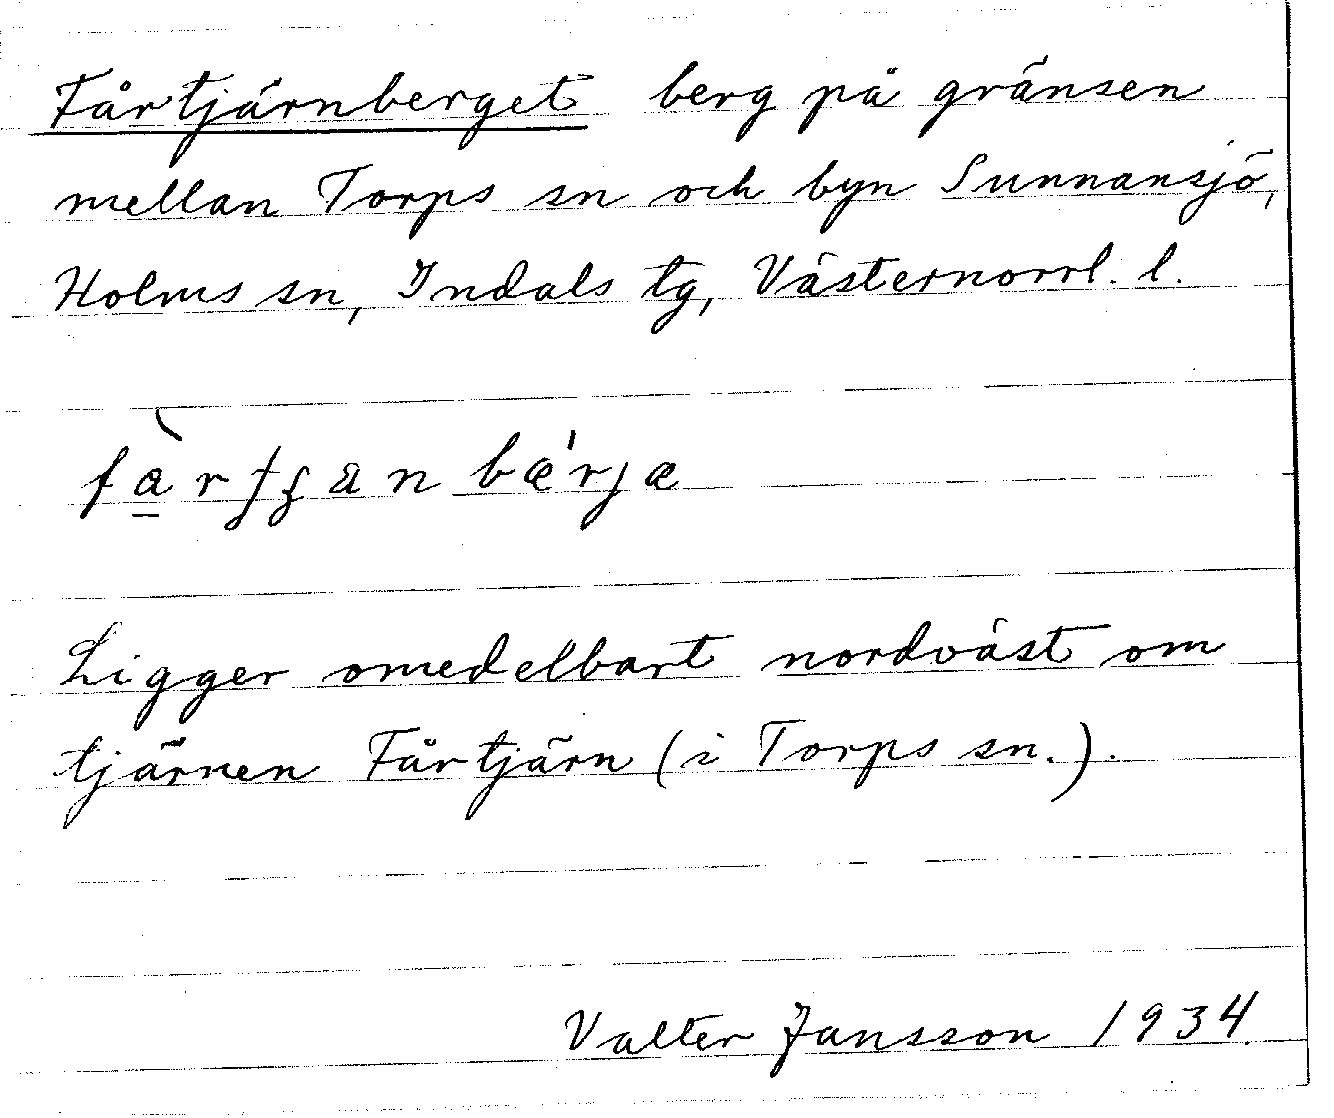 Fårtjärnberget berg på gränsen
mellan Torps sn och byn Sunnansjö,
Holms sn, Indals tg, Västernorrl. l.
Ligger omedelbart nordväst om
tjärnen Fårtjärn (i Torps sn.).
Valter Jansson 1934.